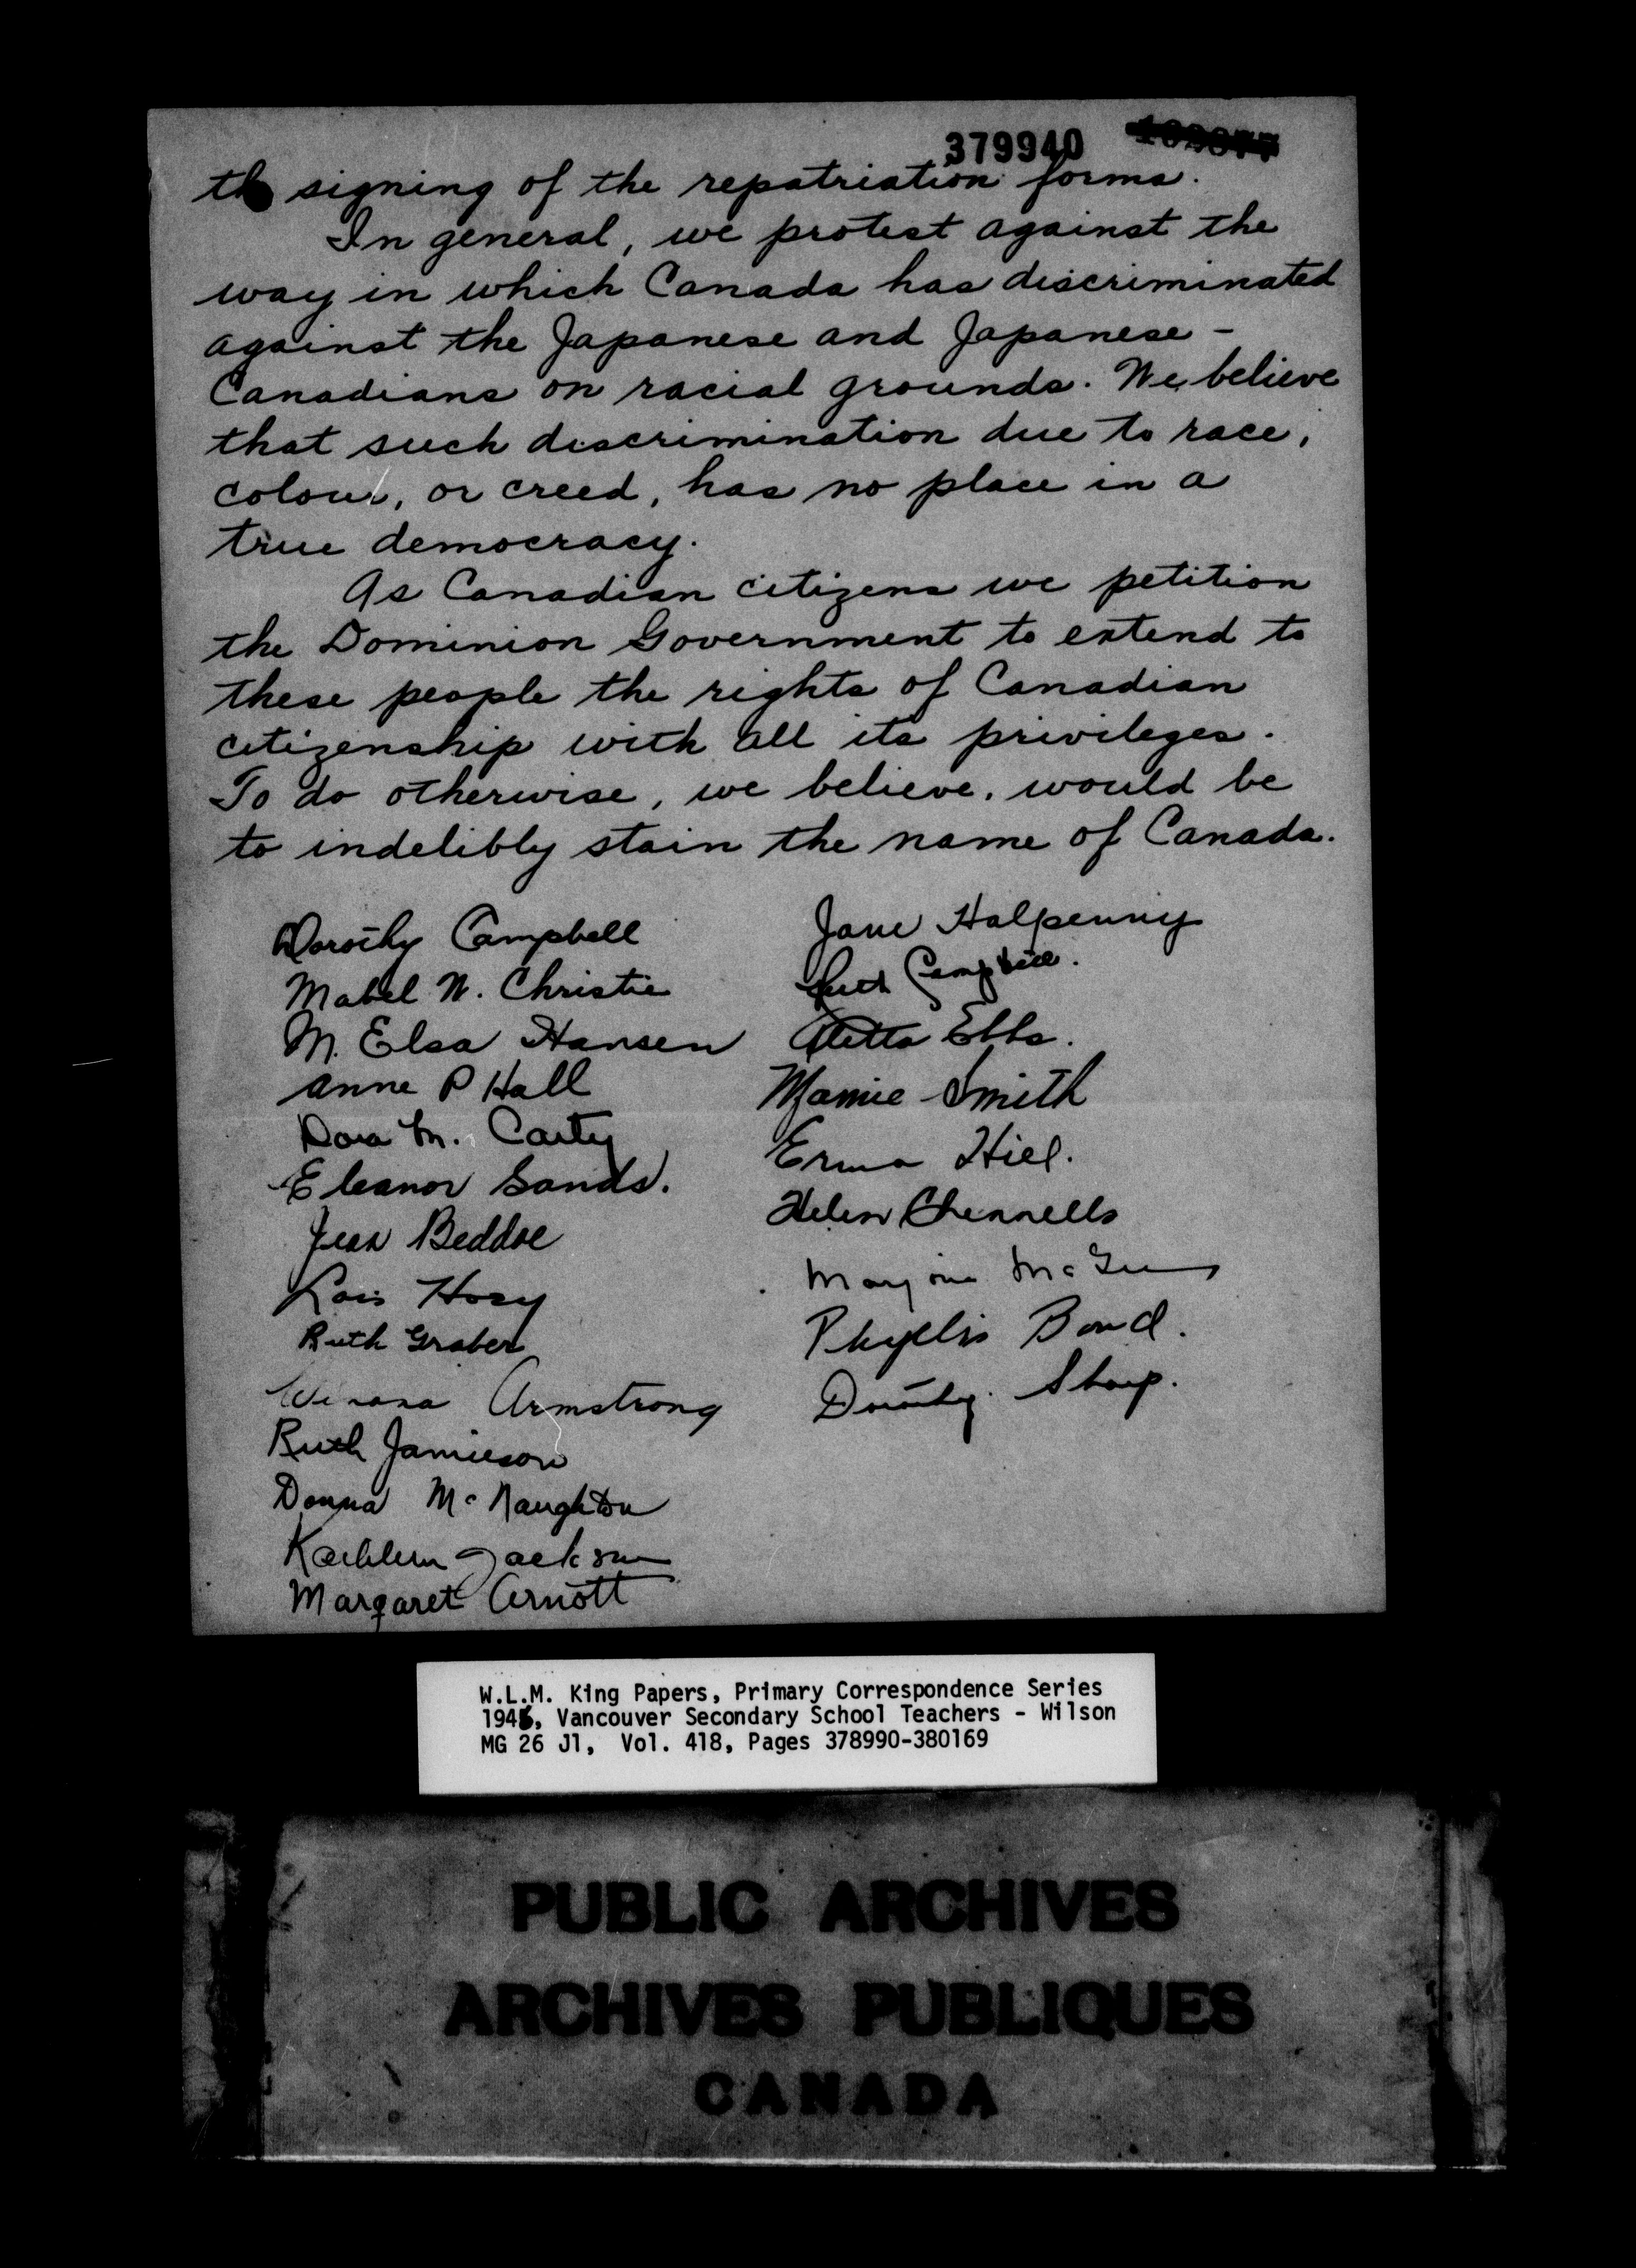 379940
the signing of the repatriation forms.
In general, we protest against the
way in which Canada has discriminated
against the Japanese and Japanese -
Canadians on racial grounds. We believe
that such discrimination due to race,
colour, or creed, has no place in a
true democracy.
As Canadian citizens we petition
the Dominion Government to extend to
these people the rights of Canadian
citizenship with all its privileges.
To do otherwise, we believe, would be
to indelibly stain the name of Canada.
Dorothy Campbell
Mabel N. Christie
M. Elsa Hansen
Anne P Hall
Dora M. Carty
Eleanor Sands.
Jean Beddoe
Lois Hosy
Ruth Graber
Winona Armstrong
Ruth Jamieson
Donna McNaughton
Kathleen Jackson
Margaret Arnott
Jane Halpenny
Ruth Campbell.
Aletta Ebbs.
Mamie Smith
Erma Hiel.
Helen Chennells
Marjorie
Phyllis Bond.
Dorothy Sharp.
W.L.M. King Papers, Primary Correspondence Series
1945, Vancouver Secondary School Teachers - Wilson
MG 26 J1, Vol. 418, Pages 378990-380169
PUBLIC ARCHIVES
ARCHIVES PUBLIQUES
CANADA